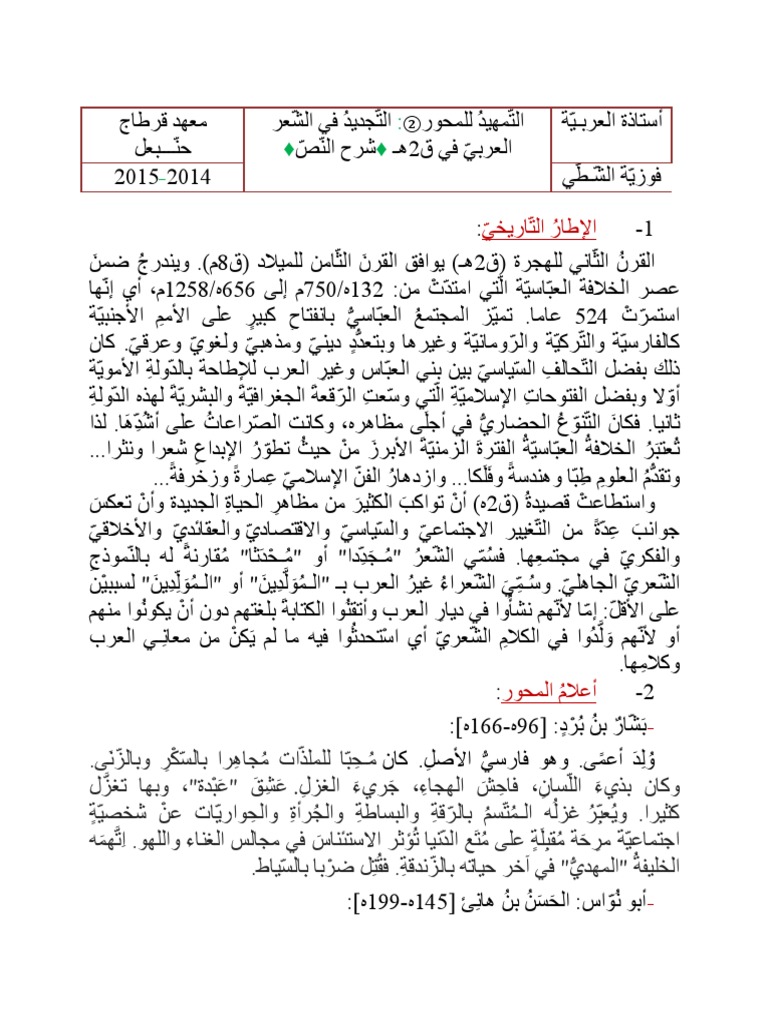 أستاذة العربـيّة
التّمهيدُ للمحور②: التّجديدُ في الشّعر
معهد قرطاج
العربيّ في ق2هـ ♦شرح النّصّ♦
حنّـــبعل
فوزيّة الشّـطّي
2014-2015
1- الإطارُ التّاريخيّ:
القرنُ الثّاني للهجرة (ق2هـ) يوافق القرنَ الثّامن للميلاد (ق8م). ويندرجُ ضمنَ
عصر الخلافة العبّاسيّة الّتي امتدّتْ من: 132ه/750م إلى 656ه/1258م، أي إنّها
استمرّتْ 524 عاما. تميّز المجتمعُ العبّاسيُّ بانفتاح كبيرٍ على الأممِ الأجنبيّة
كالفارسيّة والتّركيّة والرّومانيّة وغيرها وبتعدُّدٍ دينيّ ومذهبيّ ولغويّ وعرقيّ. كان
ذلك بفضل التّحالفِ السّياسيّ بين بني العبّاس وغيرِ العرب للإطاحة بالدّولةِ الأمويّة
أوّلا وبفضل الفتوحاتِ الإسلاميّةِ الّتي وسّعتِ الرّقعةَ الجغرافيّةَ والبشريّةَ لهذه الدّولةِ
ثانيا. فكانَ التّنوّعُ الحضاريُّ في أجلَى مظاهره، وكانت الصّراعاتُ على أشُدِّهَا. لذا
تُعتبَرُ الخلافةُ العبّاسيّةُ الفترةَ الزمنيّةَ الأبرزَ منْ حيثُ تطوّرُ الإبداعِ شعرا ونثرا...
وتقدُّمُ العلومِ طِبّا وهندسةً وفَلَكا... وازدهارُ الفنّ الإسلاميّ عِمارةً وزخرفةً...
واستطاعتْ قصيدةُ (ق2ه) أنْ تواكبَ الكثيرَ من مظاهرِ الحياةِ الجديدة وأنْ تعكسَ
جوانبَ عِدّةً من التّغيير الاجتماعيّ والسّياسيّ والاقتصاديّ والعقائديّ والأخلاقيّ
والفكريّ في مجتمعِها. فسُمّي الشّعرُ "مُجَدِّدا" أو "مُـحْدَثا" مُقارنةً له بالنّموذجِ
الشّعريّ الجاهليّ. وسُـمِّيَ الشّعراءُ غيرُ العرب بـ "الـمُوَلَّدِينَ" أو "الـمُوَلِّدِينَ" لسببيْن
على الأقلّ: إمّا لأنّهم نشأُوا في ديارِ العرب وأتقنُوا الكتابةَ بلغتهم دون أنْ يكونُوا منهم
أو لأنّهم وَلَّدُوا في الكلامِ الشّعريّ أي استْحدثُوا فيه ما لم يَكنْ من معانـي العرب
وكلامِها.
2- أعلامُ المحور:
-بَشّارٌ بنُ بُرْدٍ: [96ه-166ه]:
وُلِدَ أعمًى. وهو فارسيُّ الأصلِ. كان مُـحِبّا للملذّات مُجاهِرا بالسّكْرِ وبالزّنَى.
وكان بذيءَ اللّسانِ، فاحِشَ الهجاءِ، جَريءَ الغزلِ. عَشِقَ "عَبْدة"، وبها تغزّل
كثيرا. ويُعبِّرُ غزلُه الـمُتّسمُ بالرّقةِ والبساطةِ والجُرأةِ والحِواريّات عنْ شخصيّةٍ
اجتماعيّة مرِحَة مُقبِلَةٍ على مُتَع الدّنيا تُؤثر الاستئناسَ في مجالس الغناء واللهو. اِتَّهمَه
الخليفةُ "المهديُّ" في آخر حياته بالزّندقةِ. فقُتِل ضرْبا بالسّياط.
-أبو نُوّاس: الحَسَنُ بنُ هانِئ [145ه-199ه]: